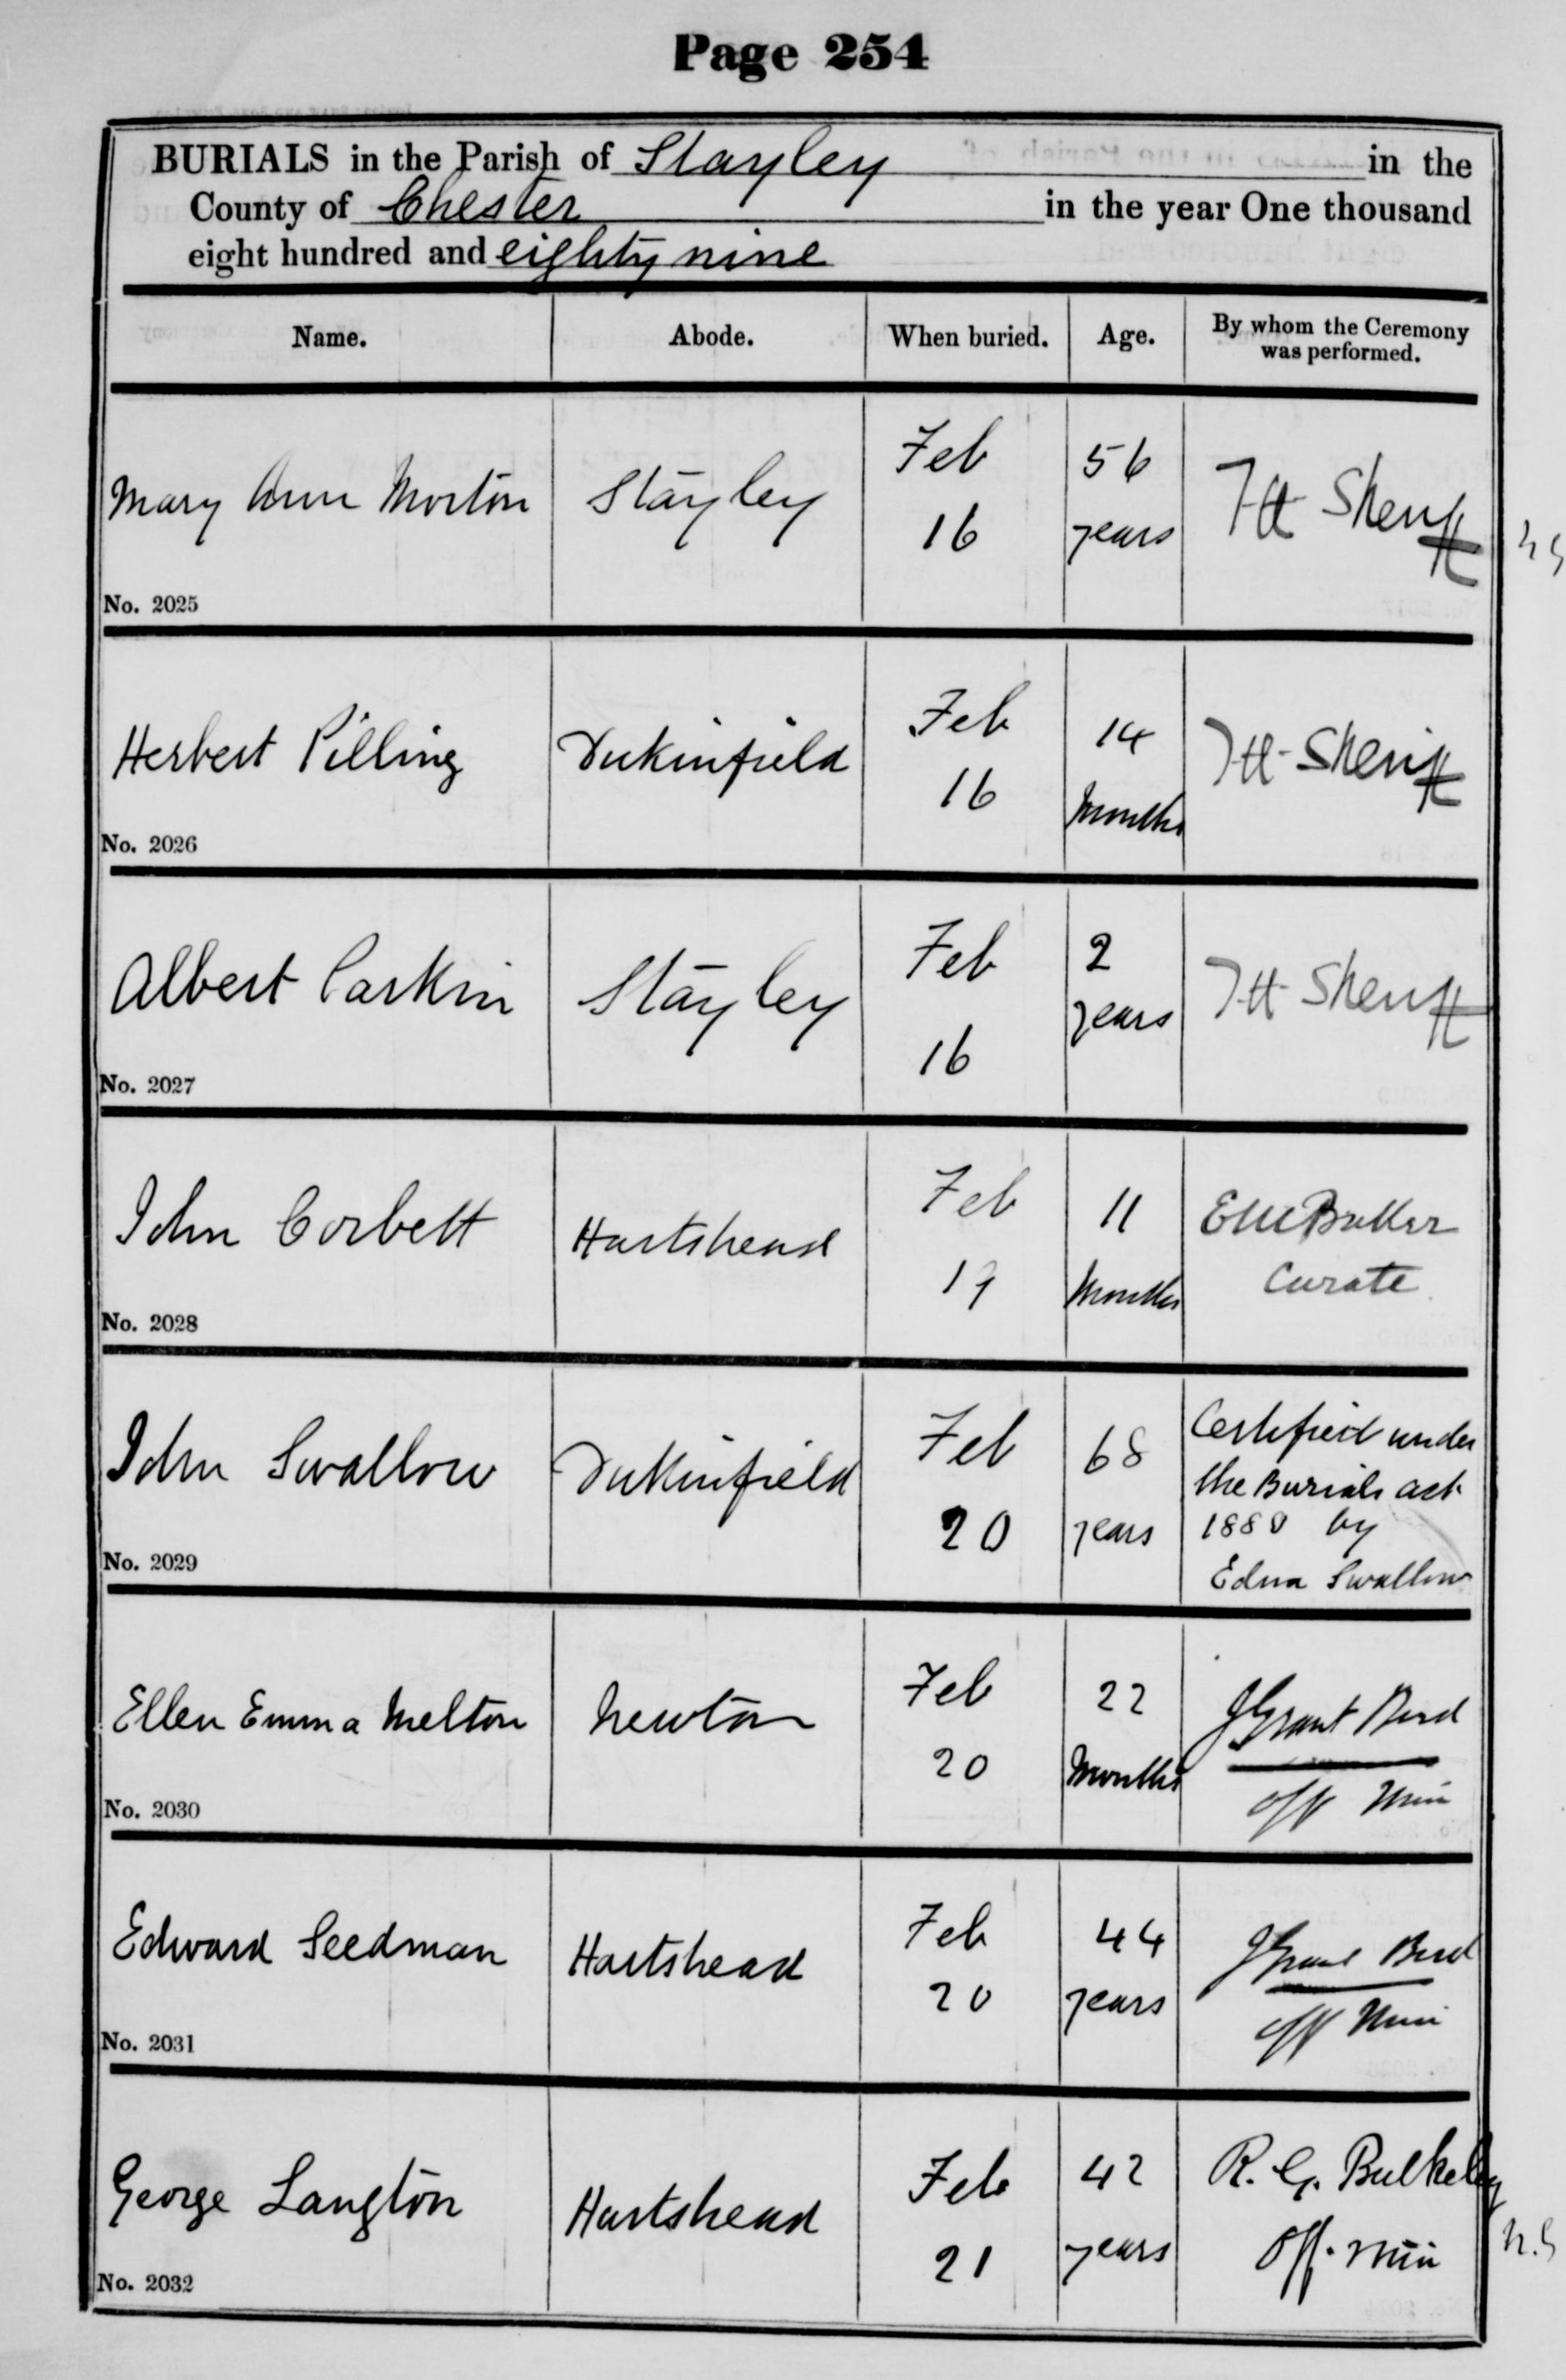 Page 254
BURIALS in the Parish of Stayley in the
County of Chester in the year One thousand
eight hundred and eighty nine
Name. Abode. When buried. Age. By whom the Ceremony was performed.
Mary Ann Morton Stayley Feb 16 56 years Sheriff
No. 2025
Herbert Pilling Dukinfield Feb 16 14 months Sheriff
No. 2026
Albert Larkin Stayley Feb 16 2 years Sheriff
No. 2027
John Corbett Hartshead Feb 19 11 Months Curate
No. 2028
John Swallow Dukinfield Feb 20 68 years Certified under
the Burials act
1880 by
Edna Swallow
No. 2029
Ellen Emma Melton Newton Feb 20 22 Months J Grant Bird
off Min
No. 2030
Edward Seedman Hartshead Feb 20 44 years J Grant Bird
off Min
No. 2031
George Langton Hartshead Feb 21 42 years R. G. Bulkeley
Off. Min
No. 2032